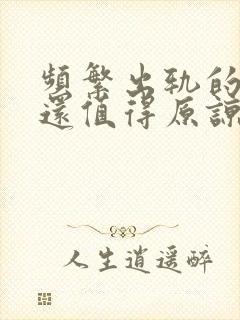 頻繁出轨的
還值得原諒
人生逍遥醉